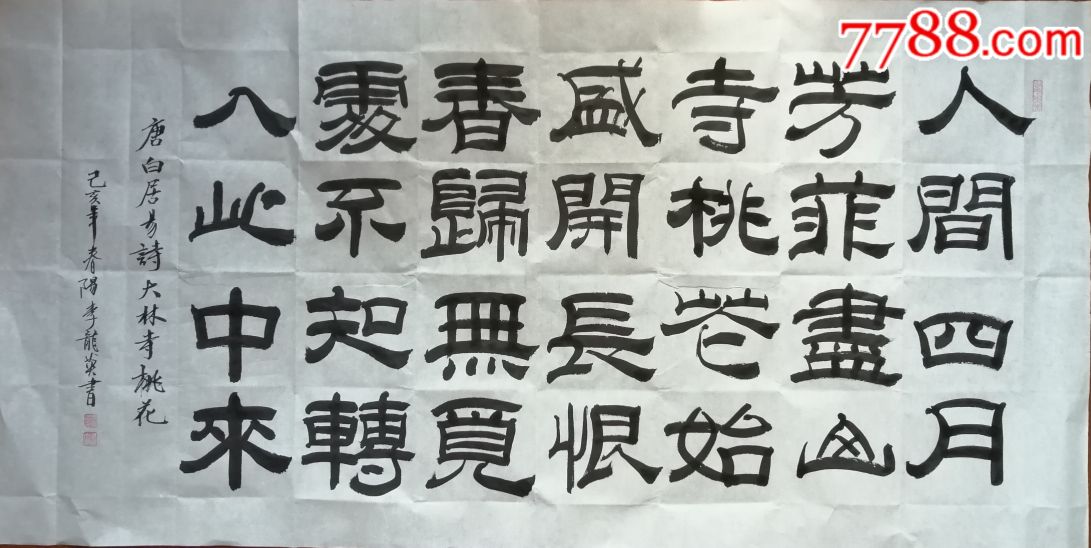 7788.com
人間四月
芳菲盡山
寺桃花始
盛開長恨
春歸無覓
處不知轉
入此中來
唐白居易詩大林寺桃花
己亥年春陽李龍英書